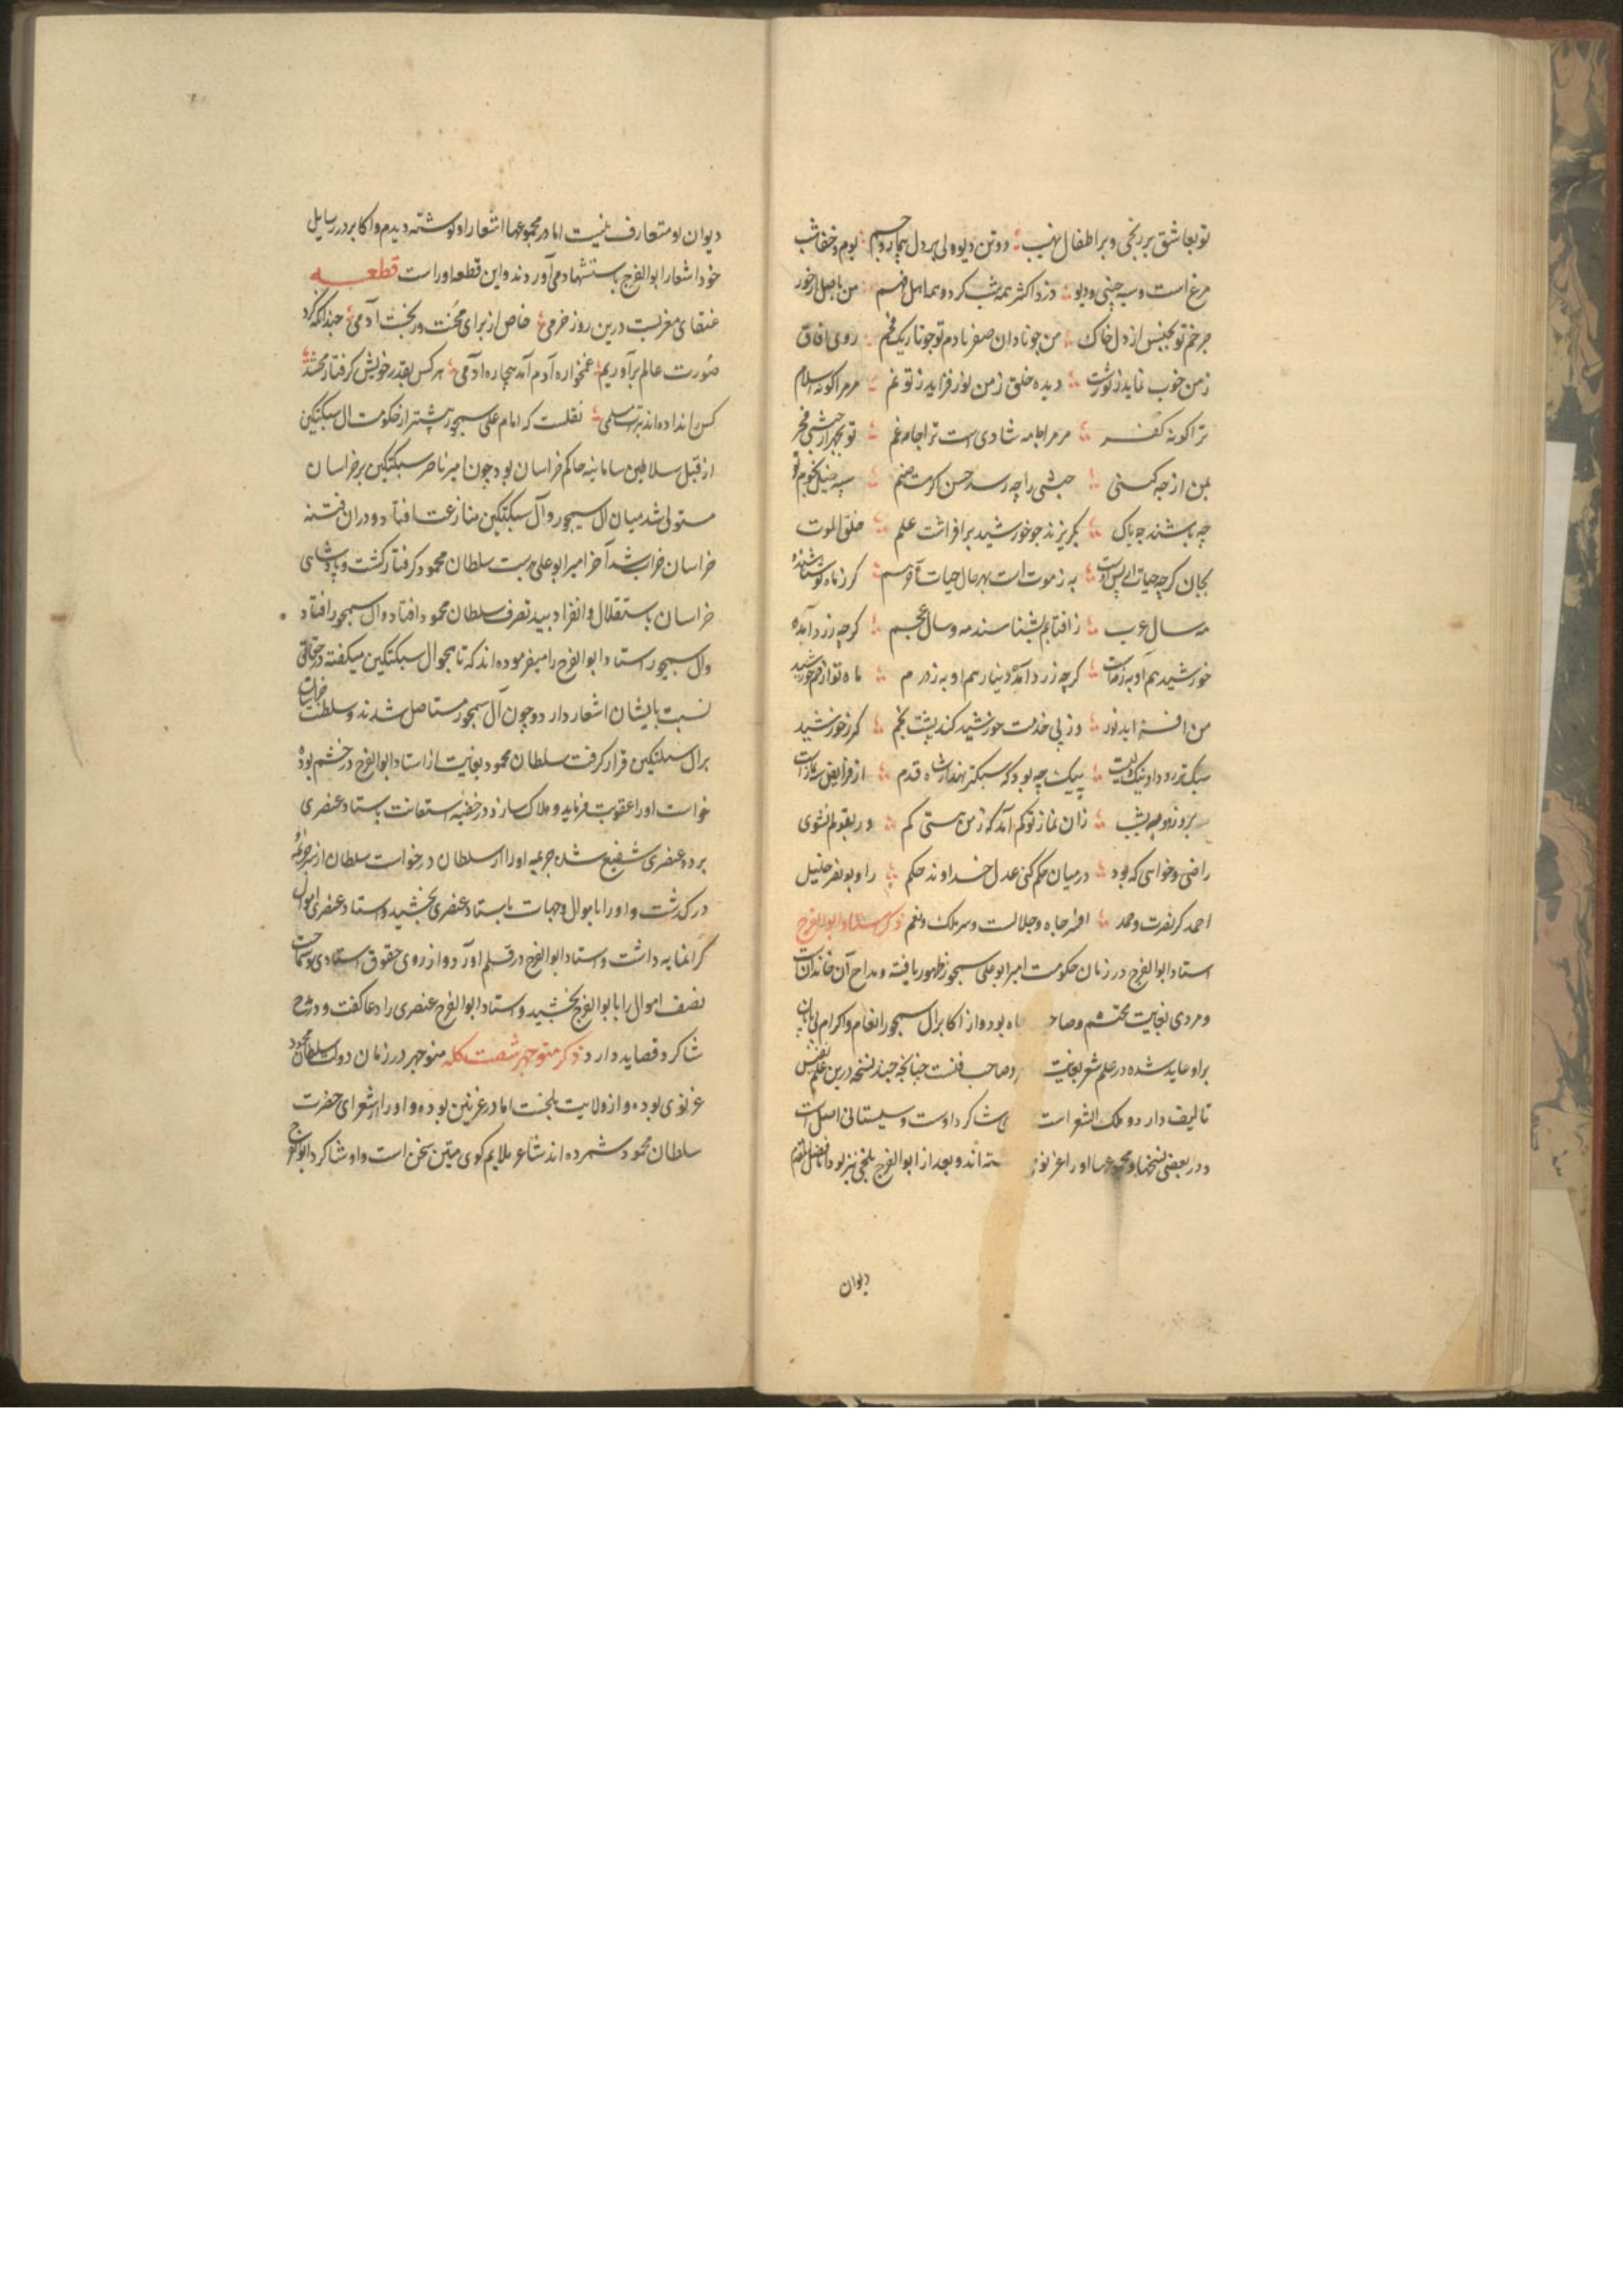 تو بعاشق بر رنجی و بر اطفال نهیب دو تن دیو ولی بر دل بیمار و جسیم بوم و خفاش
مرغ است و سیه جنی و دیو دزد اکثر همه شب کرد و هما اهل فهم من باصل از خور
چرخم تو بجنس از دل خاک من چو نادان صفرنا دم تو چو تاریک فحم روی افاق
ز من خوب نماید ز تو زشت دیده خلق ز من نور فزاید ز تو غم مر مرا کونه اسلام
ترا کونه کفر مر مرا جامه شادی است ترا جامه غم تو بچهر از حبشی فخر
بمن از چه کنی حبشی را چه رسد حسن اکرهست صنم سپه خیل نجوم تو
چه باشند چه باک بکریزند چو خورشید بر افراشت علم خلق الموت
بخوان کرچه حیات از پس اوست به ز موت است بهر حال حیات آخر سم کر ز ماه تو شناسند
مه سال عرب ز افتابم بشناسند مه و سال عجم کرچه زرد آمده
خورشید هم او به ز مهست کرچه زرد آمده دینار هم او به ز درم ماه تو از خورشید
من افزاید نور وز پی خدمت خورشید کند پشت بخم کر ز خورشید
سبک‌تر رود او نیک نیست پیک چه بود که سبکتر نهد از شاه قدم از فرایض سه نمازت
بروز و دو بشب زان نماز تو کم آمد که ز من هستی کم ور بقولم نشوی
راضی و خواسی که بود در میان حکم کنی عدل خداوند حکم را و بونصر خلیل
احمد کز نصرت و حمد افسر جاه و جلالست و سر ملک و نعم ذکر استاد ابوالفرج
استاد ابوالفرج در زمان حکومت امیر ابوعلی سیمجور ظهور یافته و مداح آن خاندانست
و مردی بغایت محتشم و صاحب جاه بوده و از اکابر ال سیمجور انعام و اکرام بی‌پایان
بر او عاید شده در علم شعر بغایت و صاحب فنست چنانچه چند نسخه درین علم نفیس
تالیف دارد و ملک الشعر است شاکرد اوست و سیستانی اصل است
و در بعضی نسخها و مجموعها او را غزنوی اند و بعد از ابوالفرج بلخی نیز بوده
دیوان
دیوان او متعارف نیست اما در مجموعها اشعار او نوشته دیدم و اکابر در رسایل
خود اشعار ابوالفرج باستشهاد می‌آورند و این قطعه اوراست قطعه
عنقای مغربست درین روز خرمی خاص از برای محنت و رنجست آدمی چندانکه کرد
صورت عالم بر آوریم غمخواره آدم آمد بیچاره ادمی هر کس بقدر خویش کرفتار محنتند
کس را نداده‌اند برات مسلمی نقلست که امام علی سیمجور پیشتر از حکومت ال سبکتکین
از قبل سلاطین سامانیه حاکم خراسان بود چون امیر ناصر سبکتکین بر خراسان
مستولی شد میان ال سیمجور و آل سبکتکین منازعت افتاد و دران فتنه
خراسان خراب شد آخر امیر ابوعلی بدست سلطان محمود کرفتار کشت و پادشاهی
خراسان باستقلال و انفراد بید تصرف سلطان محمود افتاد و ال سیمجور افتاد
وال سیمجور استاد ابوالفرج را میفرموده‌اند که تا هجو ال سبکتکین میکفته
نسبت بایشان اشعار دارد و چون آل سیمجور مستاصل شدند و سلطنت خراسان
بر ال سبکتکین قرار کرفت سلطان محمود بغایت از استاد ابوالفرج در خشم بوده
خواست او را عقوبت فرماید و هلاک سازد در خفیه استعانت باستاد عنصری
برده عنصری شفیع شده جریمه او را از سلطان در خواست سلطان از سر جرمه او
در کذشت و او را با اموال و جهات باستاد عنصری بخشید و استاد عنصری اموال
کرانمایه داشت و استاد ابوالفرج در قلم آورد و از روی حقوق استادی و سماحت
نصف اموال را بابوالفرج بخشید و استاد ابوالفرج عنصری را دعا کفت و در مدح
شاکرد قصاید دارد ذکر منوچهر شصت کله منوچهر در زمان دولت سلطان محمود
غزنوی بوده و از ولایت بلخست اما در غزنین بوده و او را از شعرای حضرت
سلطان محمود شمرده‌اند شاعر ملایم کوی متین سخن است و او شاکرد ابوالفرج